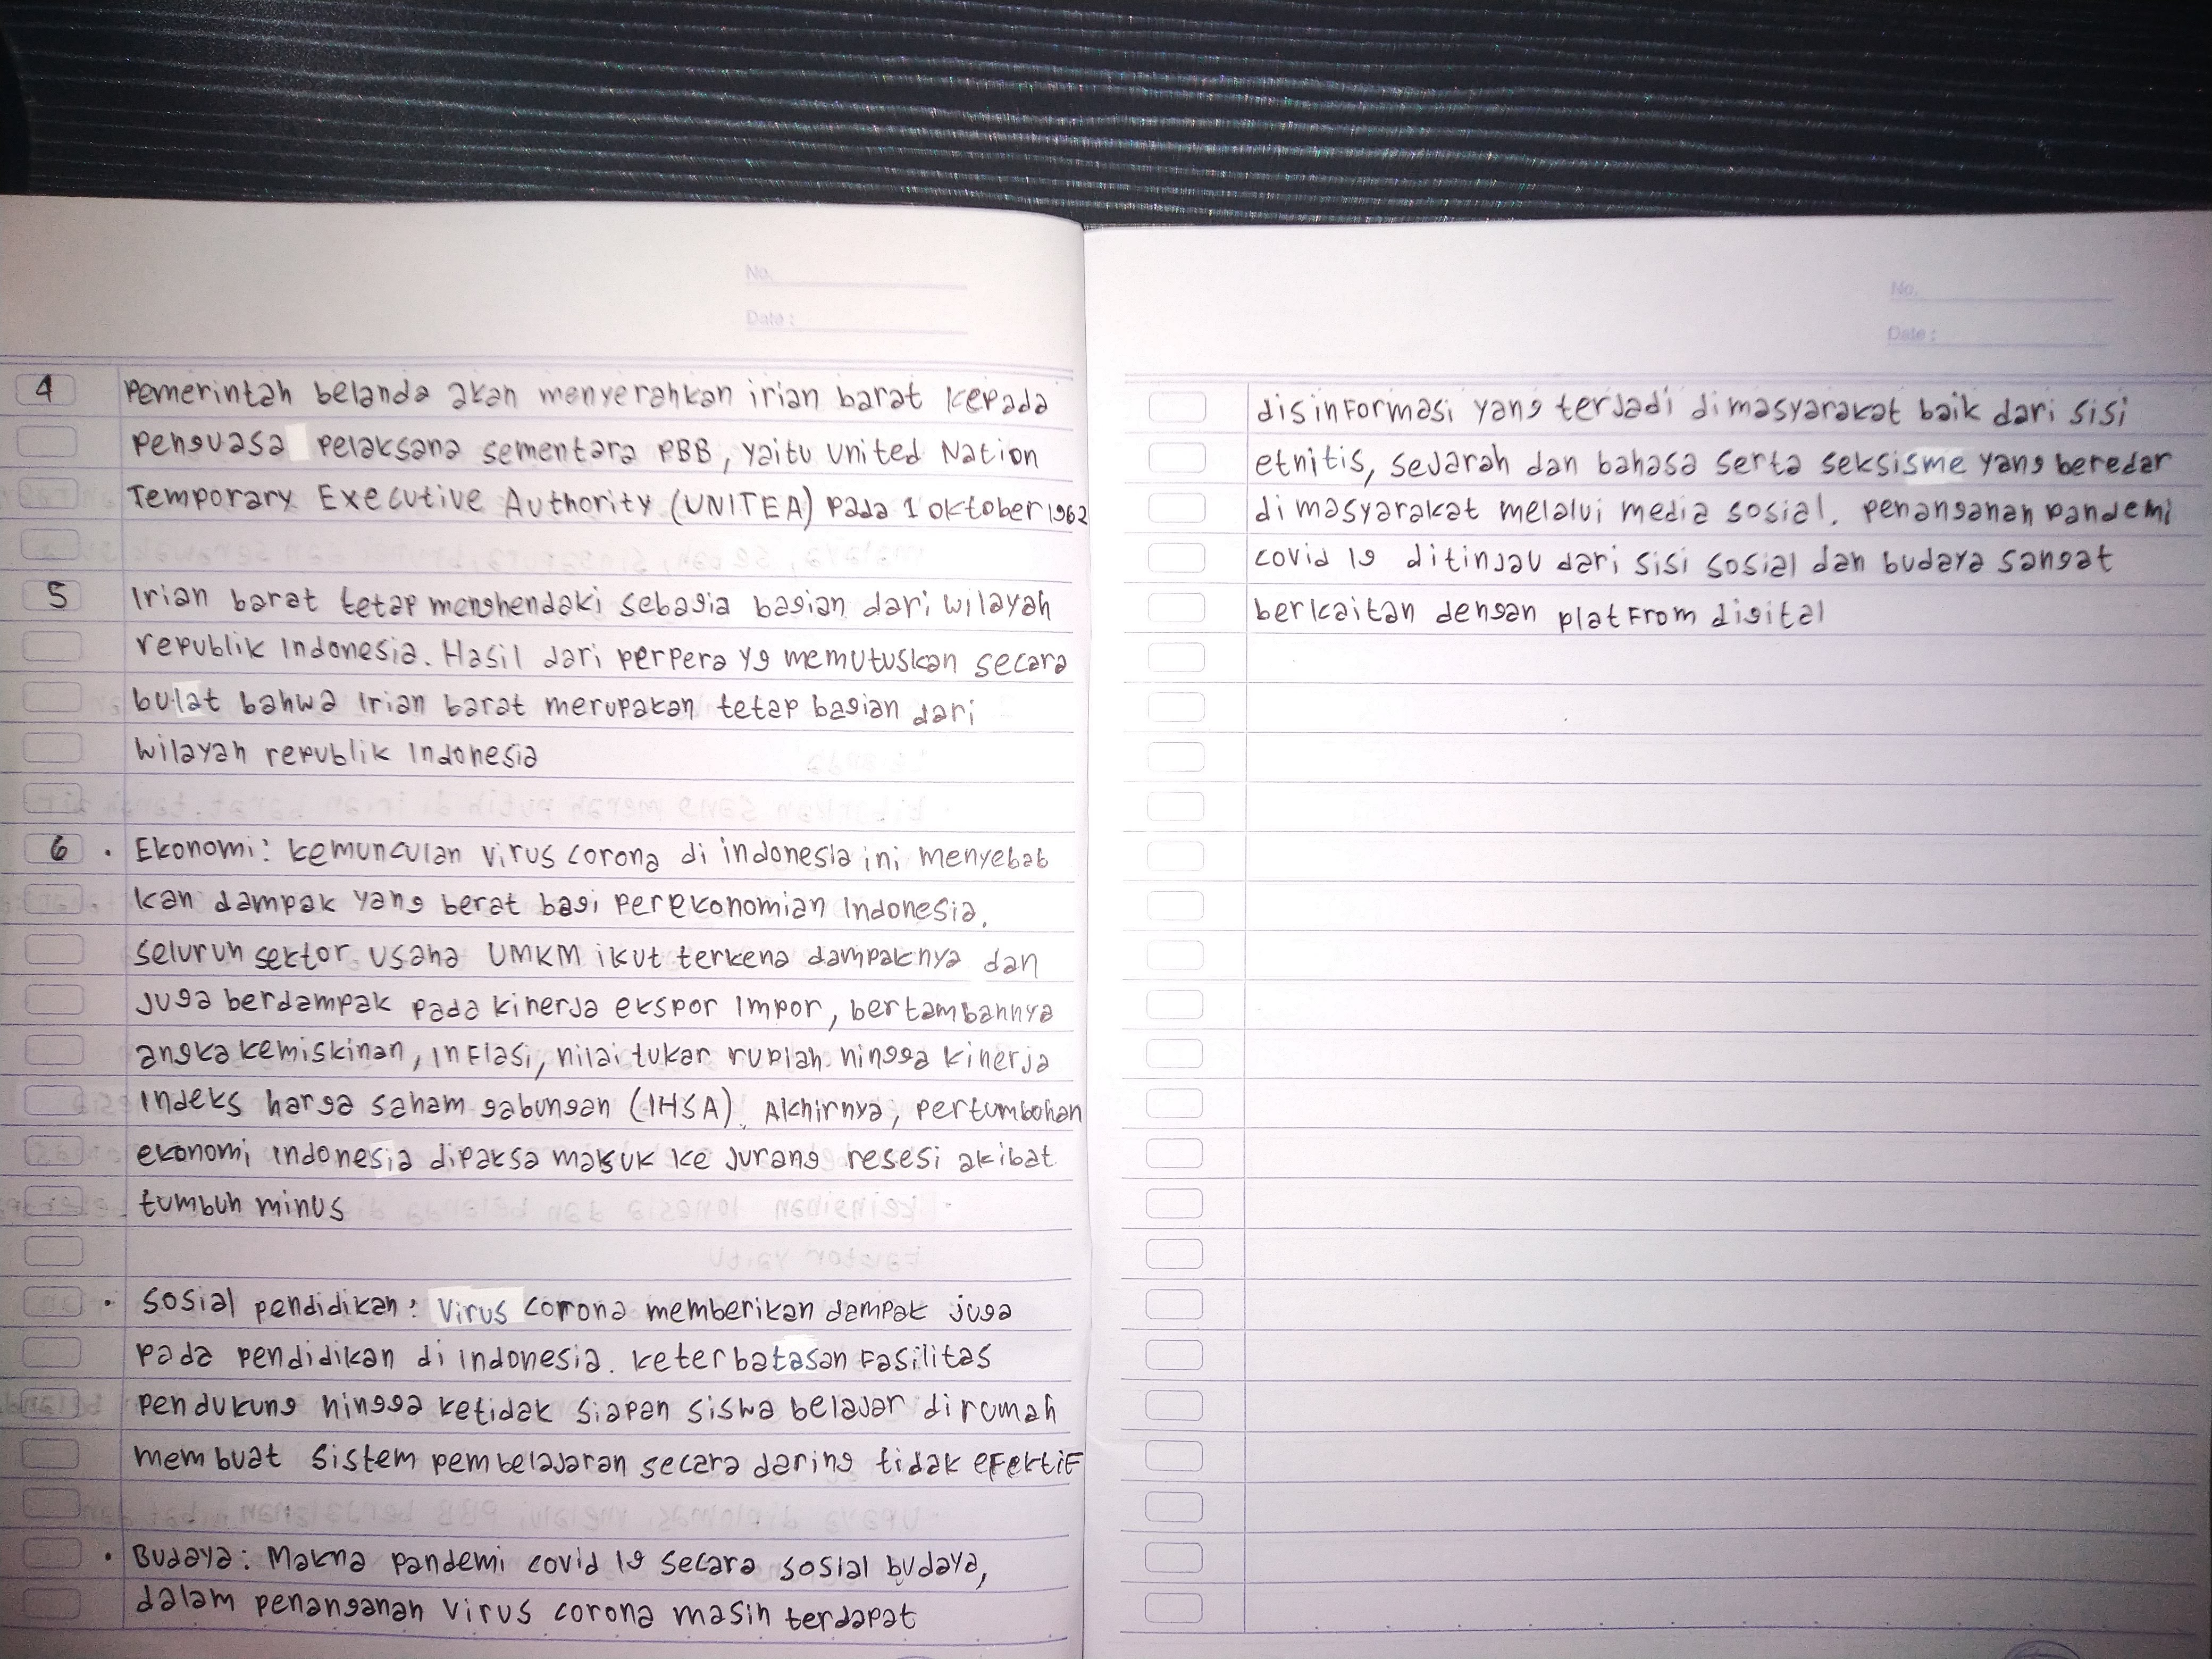 No.
Date :
4 Pemerintah belanda akan menyerahkan irian barat kepada
penguasa pelaksana sementara PBB, yaitu United Nation
Temporary Executive Authority (UNITEA) pada 1 oktober 1962
5 Irian barat tetap menghendaki sebagia bagian dari wilayah
republik Indonesia. Hasil dari perpera yg memutuskan secara
bulat bahwa Irian barat merupakan tetap bagian dari
wilayah republik Indonesia
6 • Ekonomi: kemunculan virus corona di indonesia ini menyebab
kan dampak yang berat bagi perekonomian Indonesia.
seluruh sektor usaha UMKM ikut terkena dampaknya dan
juga berdampak pada kinerja ekspor impor, bertambahnya
angka kemiskinan, inflasi, nilai tukar rupiah hingga kinerja
Indeks harga saham gabungan (IHSA). Akhirnya, pertumbohan
ekonomi indonesia dipaksa maksuk ke jurang resesi akibat
tumbuh minus
• Sosial pendidikan: Virus corona memberikan dampak juga
pada pendidikan di indonesia. keterbatasan fasilitas
pendukung hingga ketidak siapan siswa belajar di rumah
membuat sistem pembelajaran secara daring tidak efektif
• Budaya: Makna pandemi covid 19 secara sosial budaya,
dalam penanganan virus corona masih terdapat
No.
Date :
disinformasi yang terjadi dimasyarakat baik dari sisi
etnitis, sejarah dan bahasa serta seksisme yang beredar
di masyarakat melalui media sosial. penanganan pandemi
covid 19 ditinjau dari sisi sosial dan budaya sangat
berkaitan dengan platfrom digital